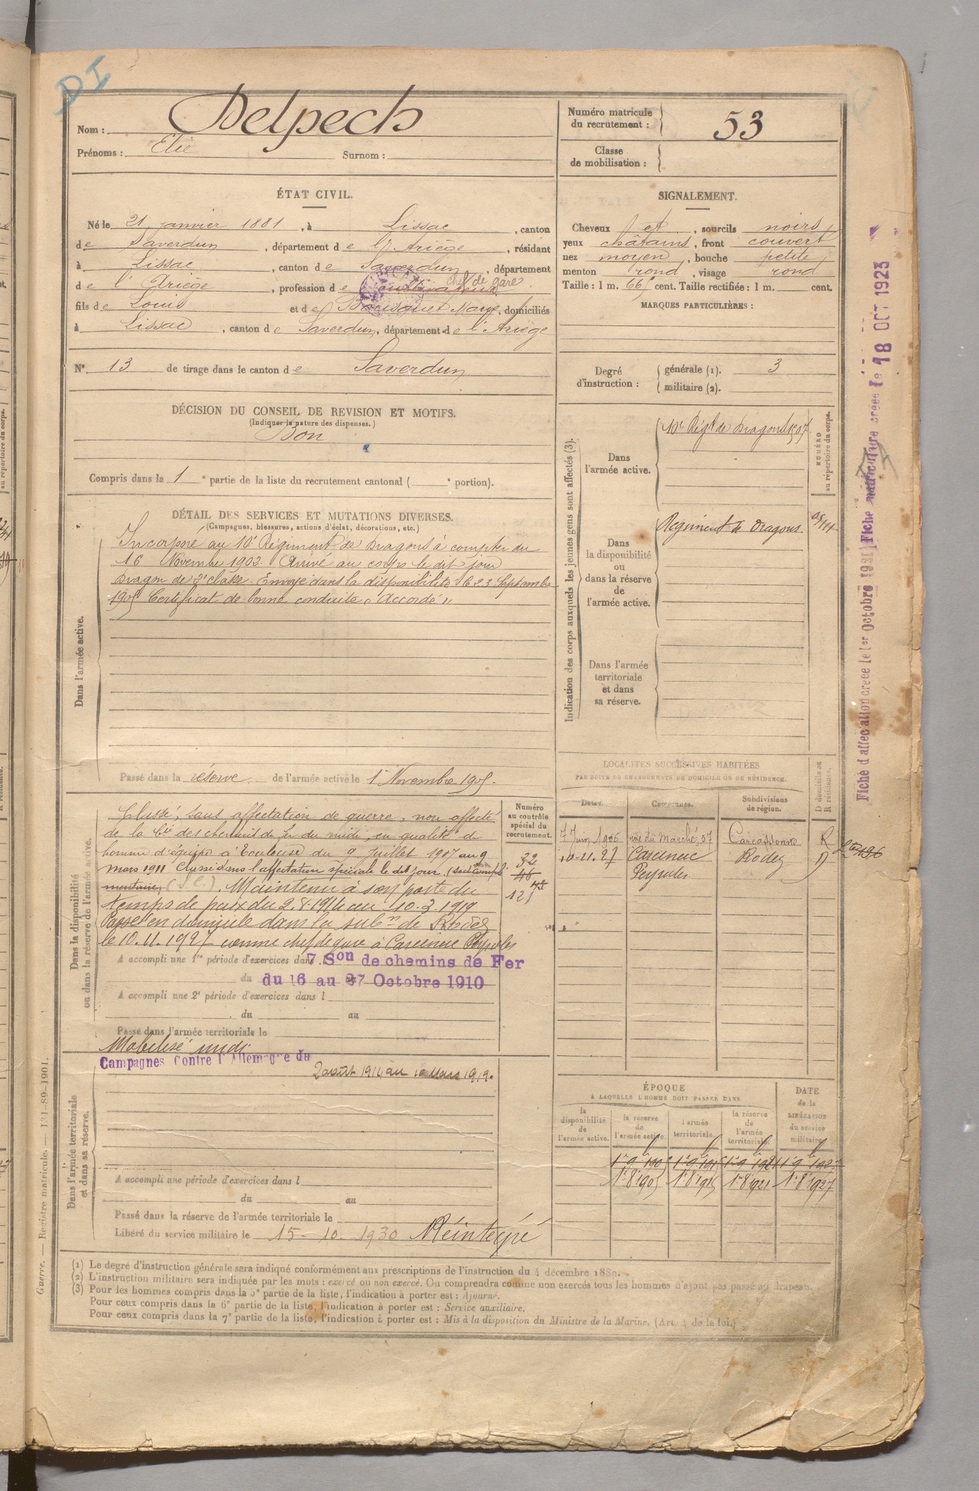 DI
Nom : Delpech
Prénoms : Elie Surnom :
Numéro matricule du recrutement : 53
Classe de mobilisation :
ÉTAT CIVIL.
Né le 21 janvier 1881, à Lissac, canton
de Saverdun, département de l'Ariège, résidant
à Lissac, canton de Saverdun, département
chef de gare
de l'Ariège, profession de cultivateur
fils de Louis et de Bousquet Marie, domiciliés
à Lissac, canton de Saverdun, département de l'Ariège
N° 13 de tirage dans le canton de Saverdun
SIGNALEMENT.
Cheveux et, sourcils noirs
yeux châtains, front couvert
nez moyen, bouche petite
menton rond, visage rond
Taille : 1 m. 66 cent. Taille rectifiée : 1 m. cent.
MARQUES PARTICULIÈRES :
Degré d'instruction : générale (1). 3
militaire (2).
DÉCISION DU CONSEIL DE REVISION ET MOTIFS.
(Indiquer la nature des dispenses.)
Bon
Compris dans la 1e partie de la liste du recrutement cantonal ( e portion).
DÉTAIL DES SERVICES ET MUTATIONS DIVERSES.
(Campagnes, blessures, actions d'éclat, décorations, etc.)
Dans l'armée active.
Incorporé au 10e Régiment de Dragons à compter du
16 Novembre 1902. Arrivé au corps le dit jour
Dragon de 2e classe. Envoyé dans la disponibilité le 23 Septembre
1905 Certificat de bonne conduite « Accordé »
Passé dans la réserve de l'armée active le 1er Novembre 1905.
Indication des corps auxquels les jeunes gens sont affectés (3).
NUMÉRO au répertoire du corps.
Dans l'armée active.
10e Régt de Dragons
Dans la disponibilité ou dans la réserve de l'armée active.
Régiment de Dragons
Dans l'armée territoriale et dans sa réserve.
LOCALITÉS SUCCESSIVES HABITÉES
PAR SUITE DE CHANGEMENTS DE DOMICILE OU DE RÉSIDENCE.
Dates. Communes. Subdivisions de région. D domicile ou R résidence.
7 Juin 1926 rue du Marché, 57 Carcassonne R
10-11.27 Carcenac Peyralès Rodez D
Dans la disponibilité ou dans la réserve de l'armée active.
Numéro au contrôle spécial du recrutement.
Classé, sans affectation de guerre, non affecté
de la Cie des chemins de fer du midi, en qualité d'
homme d'équipe à Toulouse du 9 Juillet 1907 au 9
mars 1911 Classé dans l'affectation spéciale le dit jour
(S.C). Maintenu à son poste du
temps de paix du 2.8.1914 au 10.3.1919
Passé en domicile dans la subon de Rodez
le 10.11.1927 comme chef de gare à Carcenac Peyralès
32
46
A accompli une 1re période d'exercices dans 7 Son de chemins de Fer
du 16 au 27 Octobre 1910
A accompli une 2e période d'exercices dans l
du au
Passé dans l'armée territoriale le
Mobilisé midi
Campagnes Contre l'Allemagne du
2 août 1914 au 10 Mars 1919.
Dans l'armée territoriale et dans sa réserve.
A accompli une période d'exercices dans l
du au
Passé dans la réserve de l'armée territoriale le
Libéré du service militaire le 15-10-1930 Réintégré
ÉPOQUE
A LAQUELLE L'HOMME DOIT PASSER DANS
DATE de la LIBÉRATION du service militaire.
la disponibilité de l'armée active. la réserve de l'armée active. l'armée territoriale. la réserve de l'armée territoriale.
1-8 1905 1-8 1915 1-8 1921 1-8 1927
(1) Le degré d'instruction générale sera indiqué conformément aux prescriptions de l'instruction du 4 décembre 1889.
(2) L'instruction militaire sera indiquée par les mots : exercé ou non exercé. On comprendra comme non exercés tous les hommes n'ayant pas passé au drapeau.
(3) Pour les hommes compris dans la 5e partie de la liste, l'indication à porter est : Ajourné.
Pour ceux compris dans la 6e partie de la liste, l'indication à porter est : Service auxiliaire.
Pour ceux compris dans la 7e partie de la liste, l'indication à porter est : Mis à la disposition du Ministre de la Marine.
Guerre. — Registre matricule. — 131-89-1901.
Fiche d'affectation créée le 1er Octobre 1931
Fiche matriculaire créée le 18 OCT 1923